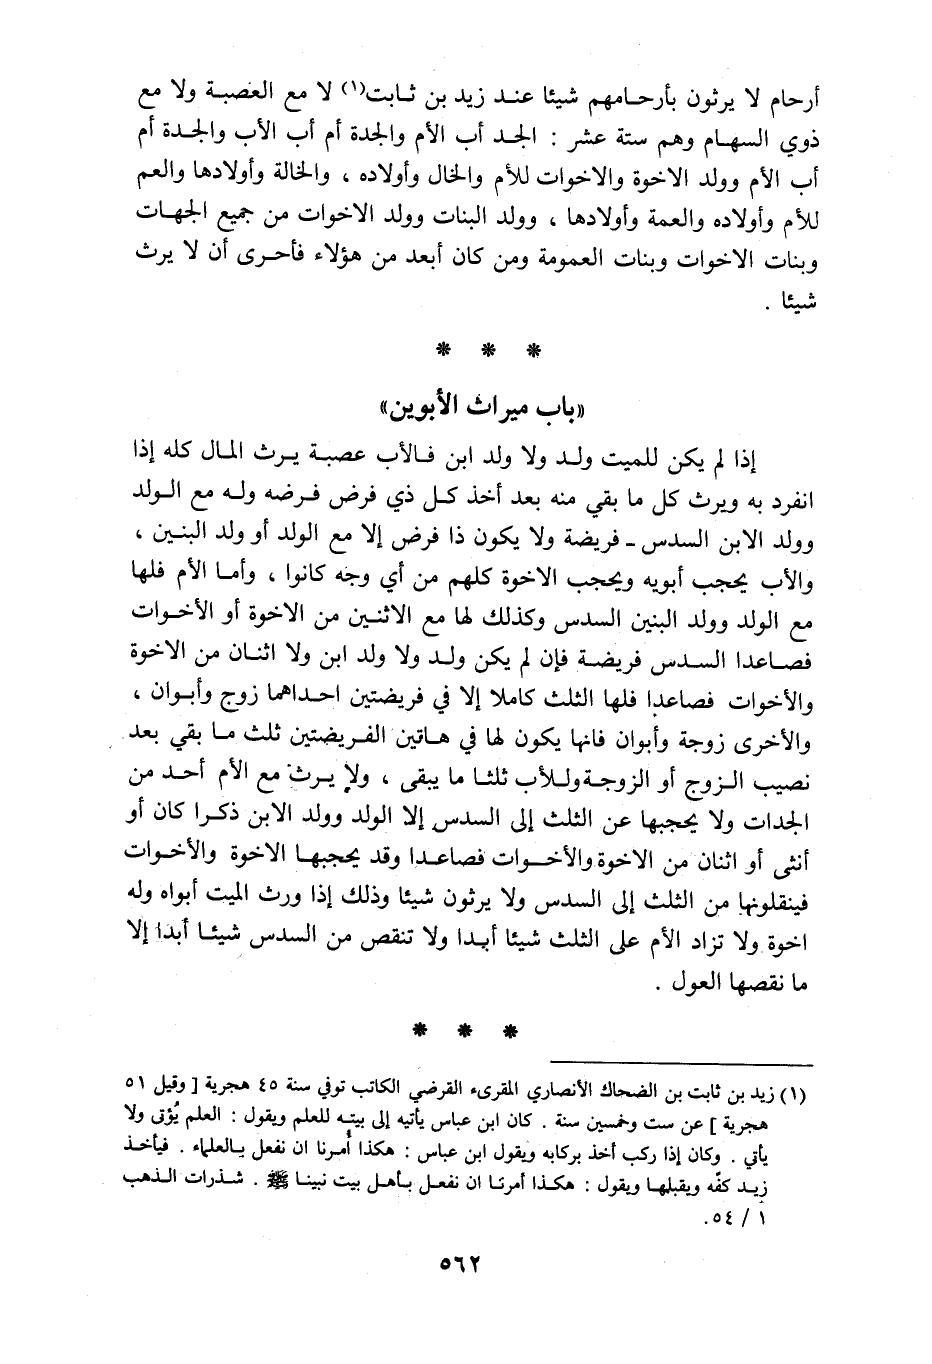 أرحام لا يرثون بأرحامهم شيئا عند زيد بن ثابت(١) لا مع العصبة ولا مع
ذوي السهام وهم ستة عشر : الجد أب الأم والجدة أم أب الأب والجدة أم
أب الأم وولد الاخوة والاخوات للأم والخال وأولاده ، والخالة وأولادها والعم
للأم وأولاده والعمة وأولادها ، وولد البنات وولد الاخوات من جميع الجهات
وبنات الاخوات وبنات العمومة ومن كان أبعد من هؤلاء فأحرى أن لا يرث
شيئا .
* * *
«باب ميراث الأبوين»
إذا لم يكن للميت ولد ولا ولد ابن فالأب عصبة يرث المال كله إذا
انفرد به ويرث كل ما بقي منه بعد أخذ كل ذي فرض فرضه وله مع الولد
وولد الابن السدس - فريضة ولا يكون ذا فرض إلا مع الولد أو ولد البنين ،
والأب يحجب أبويه ويحجب الاخوة كلهم من أي وجه كانوا ، وأما الأم فلها
مع الولد وولد البنين السدس وكذلك لها مع الاثنين من الاخوة أو الأخوات
فصاعدا السدس فريضة فإن لم يكن ولد ولا ولد ابن ولا اثنان من الاخوة
والأخوات فصاعدا فلها الثلث كاملا إلا في فريضتين احداهما زوج وأبوان ،
والأخرى زوجة وأبوان فانها يكون لها في هاتين الفريضتين ثلث ما بقي بعد
نصيب الزوج أو الزوجة وللأب ثلثا ما يبقى ، ولا يرث مع الأم أحد من
الجدات ولا يحجبها عن الثلث إلى السدس إلا الولد وولد الابن ذكرا كان أو
أنثى أو اثنان من الاخوة والأخوات فصاعدا وقد يحجبها الاخوة والأخوات
فينقلونها من الثلث إلى السدس ولا يرثون شيئا وذلك إذا ورث الميت أبواه وله
اخوة ولا تزاد الأم على الثلث شيئا أبدا ولا تنقص من السدس شيئا أبدا إلا
ما نقصها العول .
* * *
(١) زيد بن ثابت بن الضحاك الأنصاري المقرىء القرضي الكاتب توفي سنة ٤٥ هجرية [ وقيل ٥١
هجرية ] عن ست وخمسين سنة . كان ابن عباس يأتيه إلى بيته للعلم ويقول : العلم يُؤتى ولا
يأتي . وكان إذا ركب أخذ بركابه ويقول ابن عباس : هكذا أُمرنا ان نفعل بالعلماء . فيأخذ
زيد كفّه ويقبلها ويقول : هكذا أمرنا ان نفعل بأهل بيت نبينا ﷺ . شذرات الذهب
١ / ٥٤.
٥٦٢